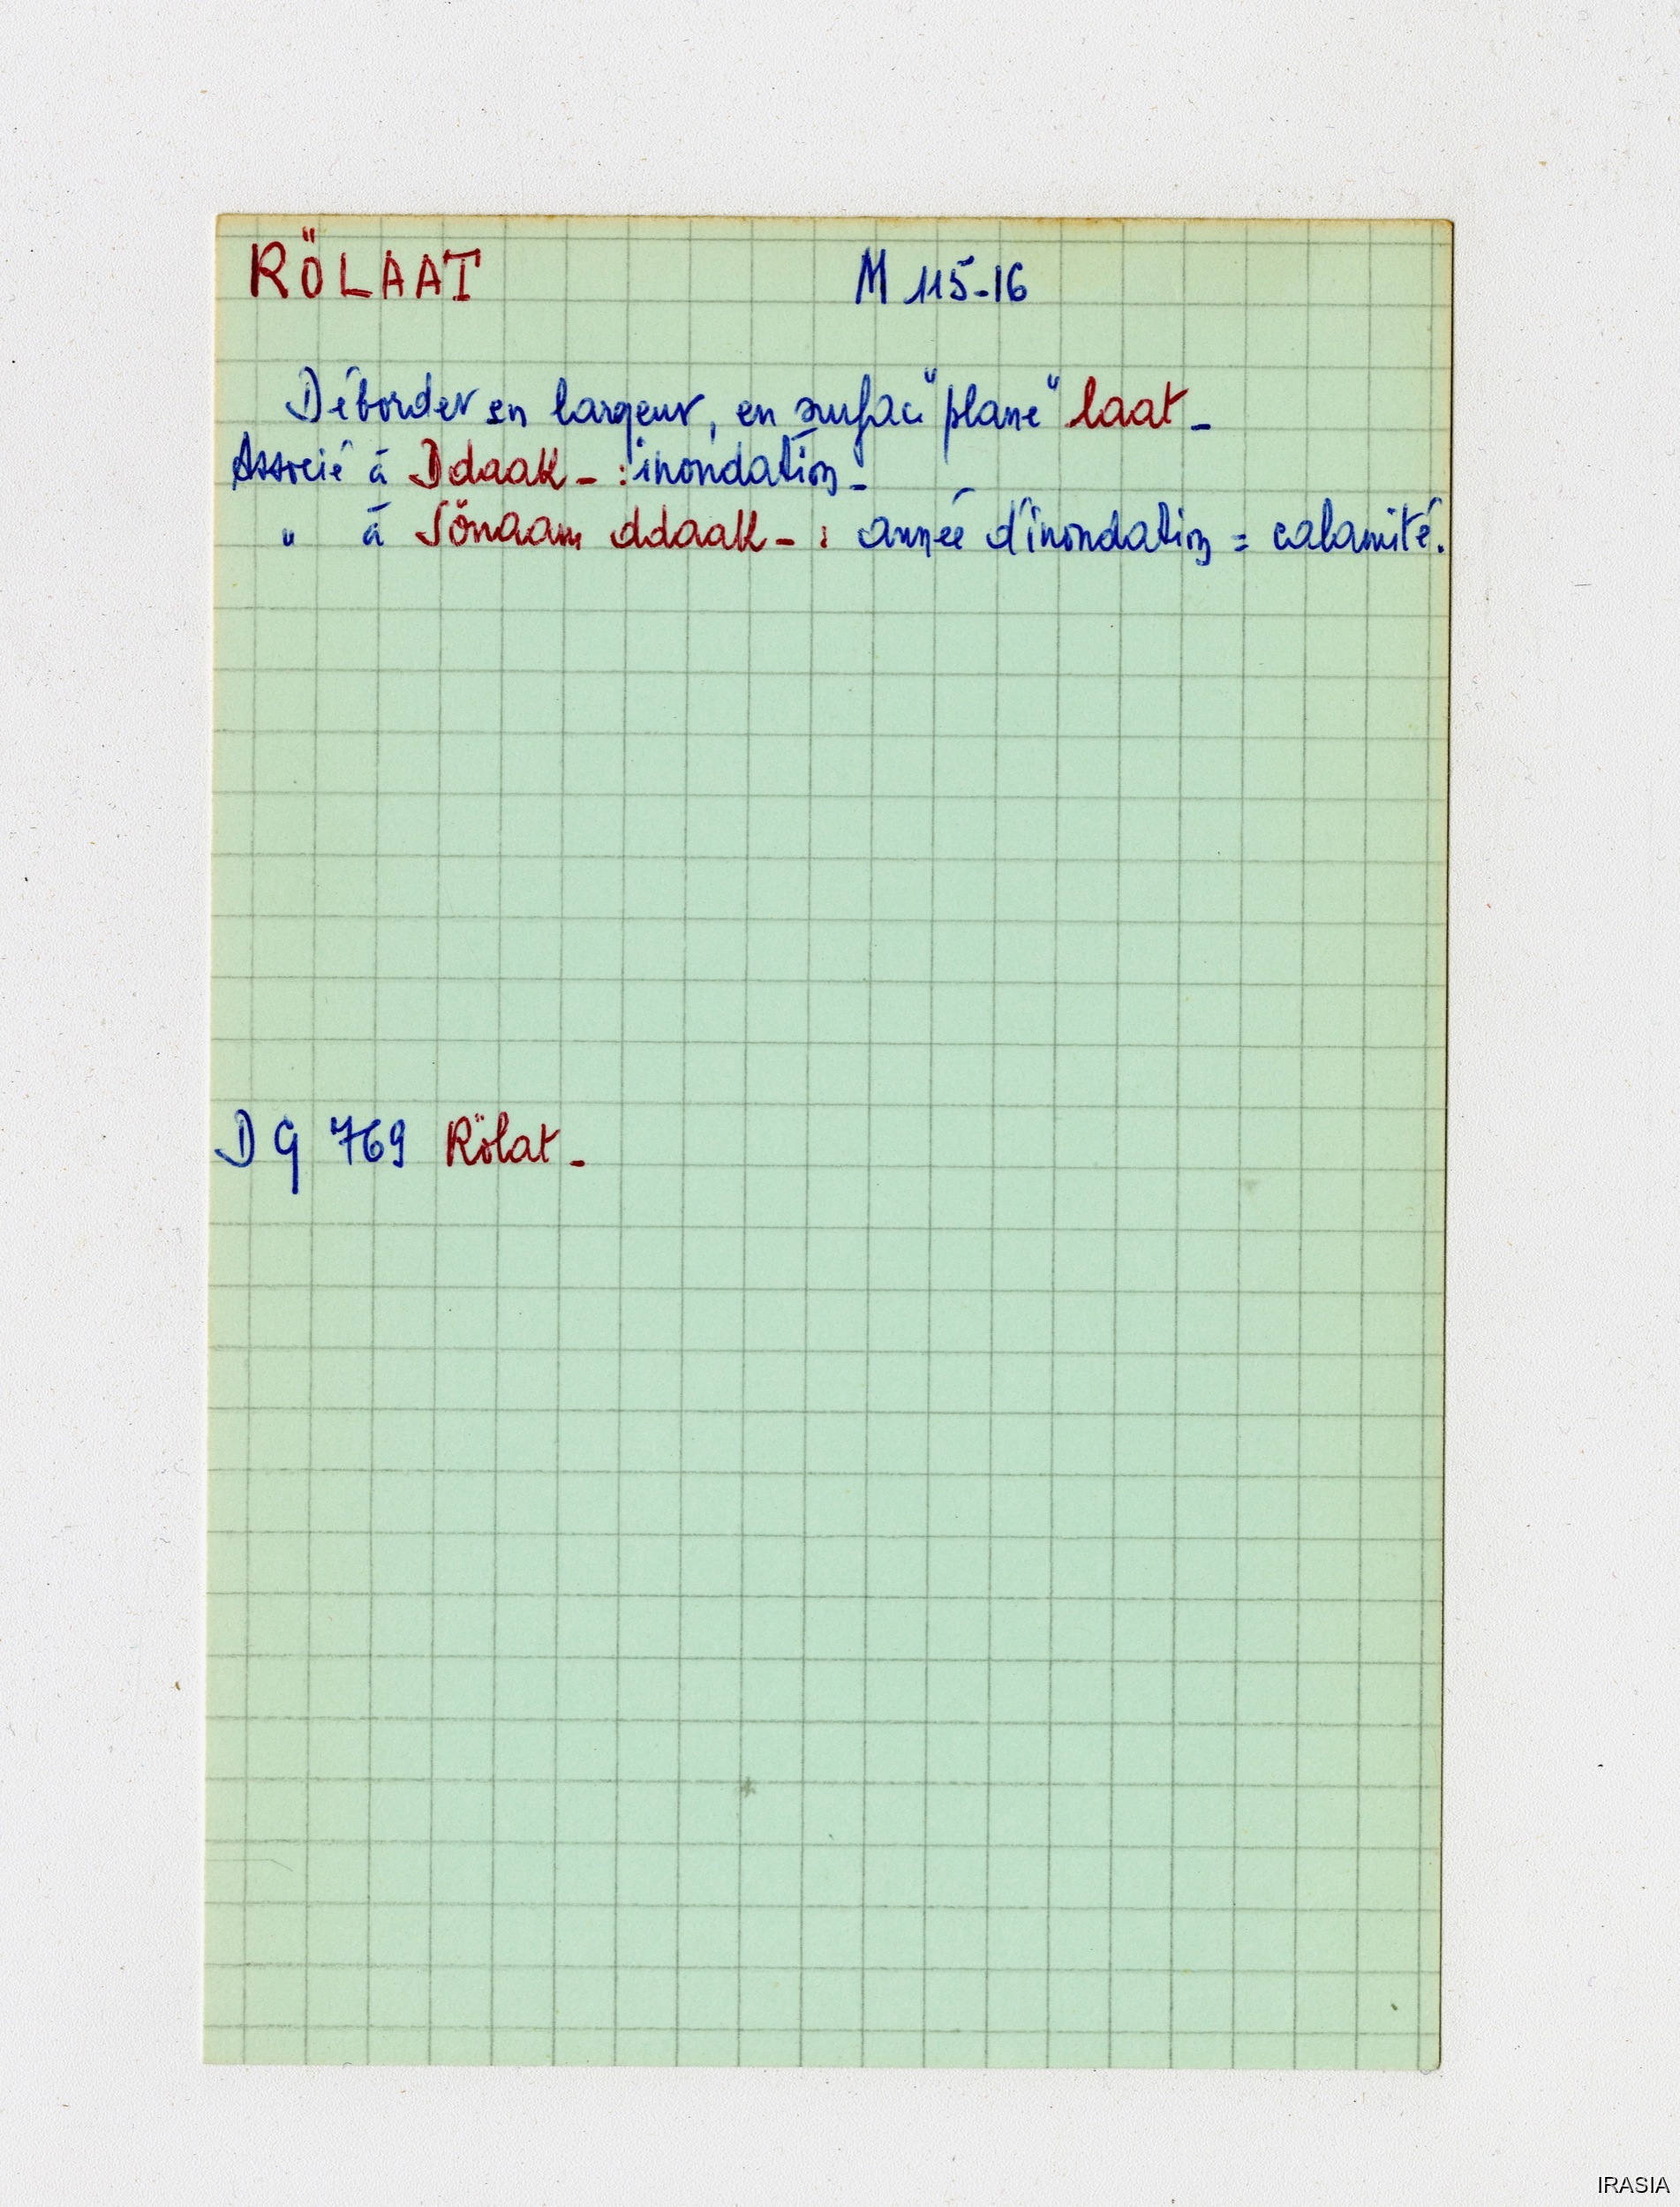 RÖLAAT M 115-16
Déborder en largeur, en surface "plane" laat -
Associé à Ddaak - : inondation -
" à Sönaam ddaak - : année d'inondation = calamité.
DG 769 Rölat -
IRASIA